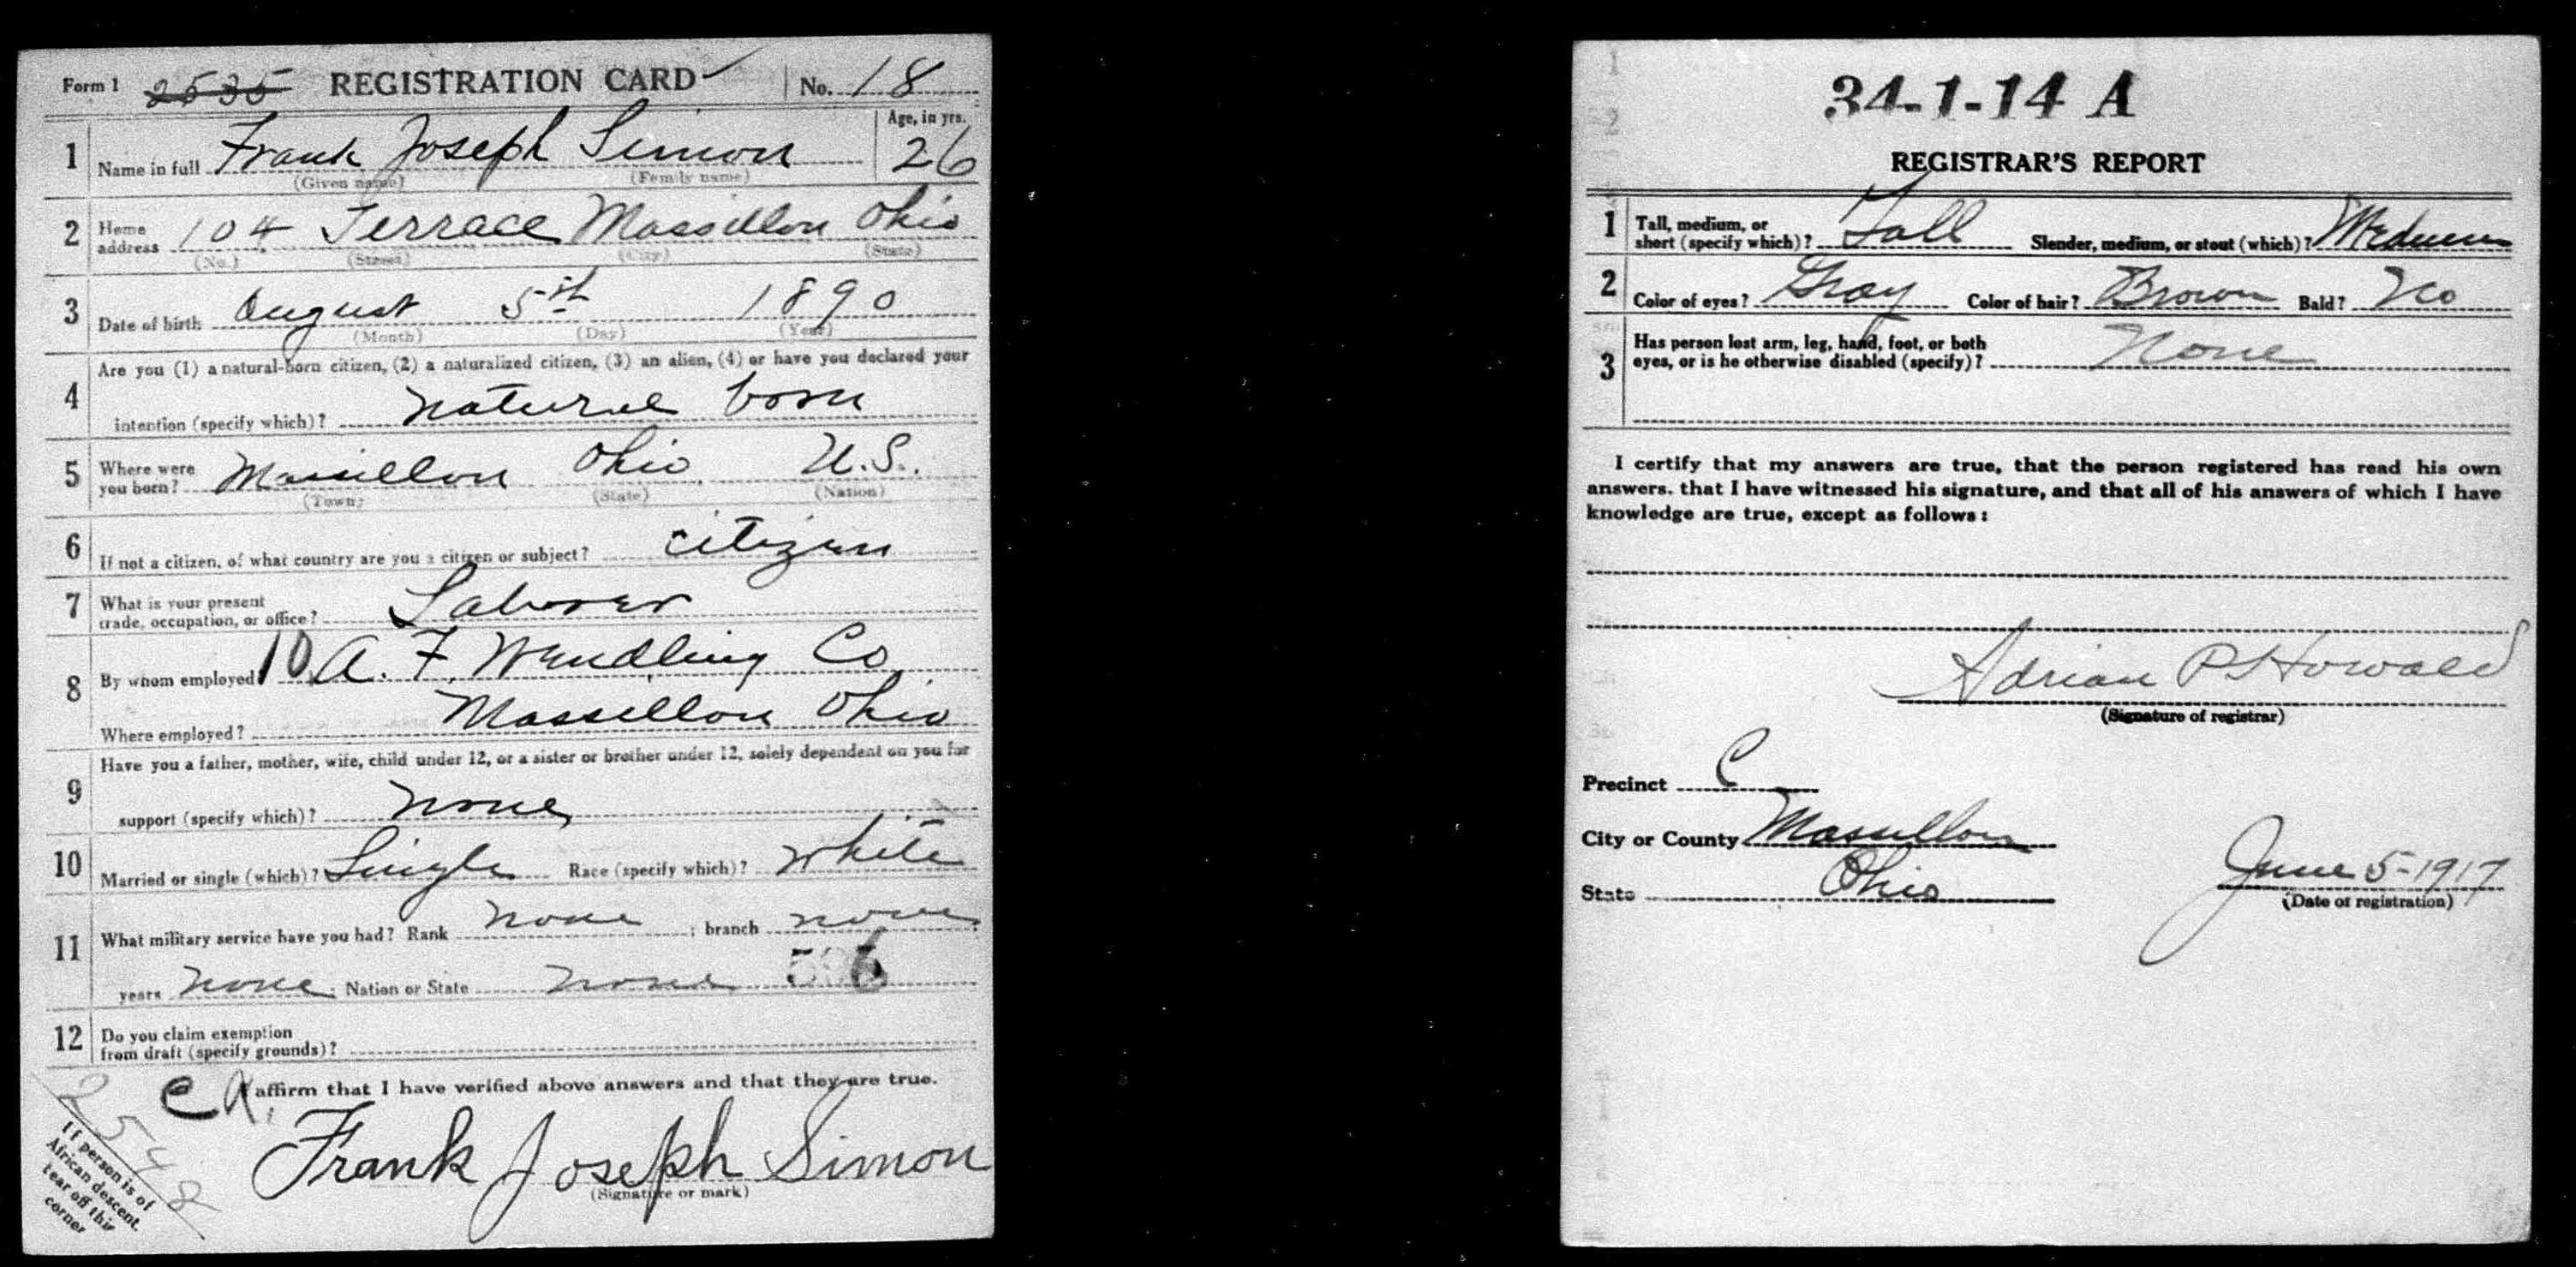 Form 1 2535 REGISTRATION CARD No. 18
1 Name in full Frank Joseph Simon Age, in yrs. 26
(Given name) (Family name)
2 Home address 104 Terrace Massillon Ohio
(No.) (Street) (City) (State)
3 Date of birth August 5th 1890
(Month) (Day) (Year)
4 Are you (1) a natural-born citizen, (2) a naturalized citizen, (3) an alien, (4) or have you declared your
intention (specify which)? natural born
5 Where were you born? Massillon Ohio U.S.
(Town) (State) (Nation)
6 If not a citizen, of what country are you a citizen or subject? citizen
7 What is your present trade, occupation, or office? Laborer
8 By whom employed 10 A. F. Wendling Co
Where employed? Massillon Ohio
9 Have you a father, mother, wife, child under 12, or a sister or brother under 12, solely dependent on you for
support (specify which)? none
10 Married or single (which)? Single Race (specify which)? White
11 What military service have you had? Rank none ; branch none
years none ; Nation or State none
12 Do you claim exemption
from draft (specify grounds)?
affirm that I have verified above answers and that they are true.
Frank Joseph Simon
(Signature or mark)
2548
If person is of
African descent,
tear off this
corner
34-1-14 A
REGISTRAR'S REPORT
1 Tall, medium, or short (specify which)? Tall Slender, medium, or stout (which)? Medium
2 Color of eyes? Gray Color of hair? Brown Bald? No
3 Has person lost arm, leg, hand, foot, or both
eyes, or is he otherwise disabled (specify)? None
I certify that my answers are true, that the person registered has read his own
answers, that I have witnessed his signature, and that all of his answers of which I have
knowledge are true, except as follows:
Adrian P Howald
(Signature of registrar)
Precinct C
City or County Massillon
State Ohio June 5-1917
(Date of registration)